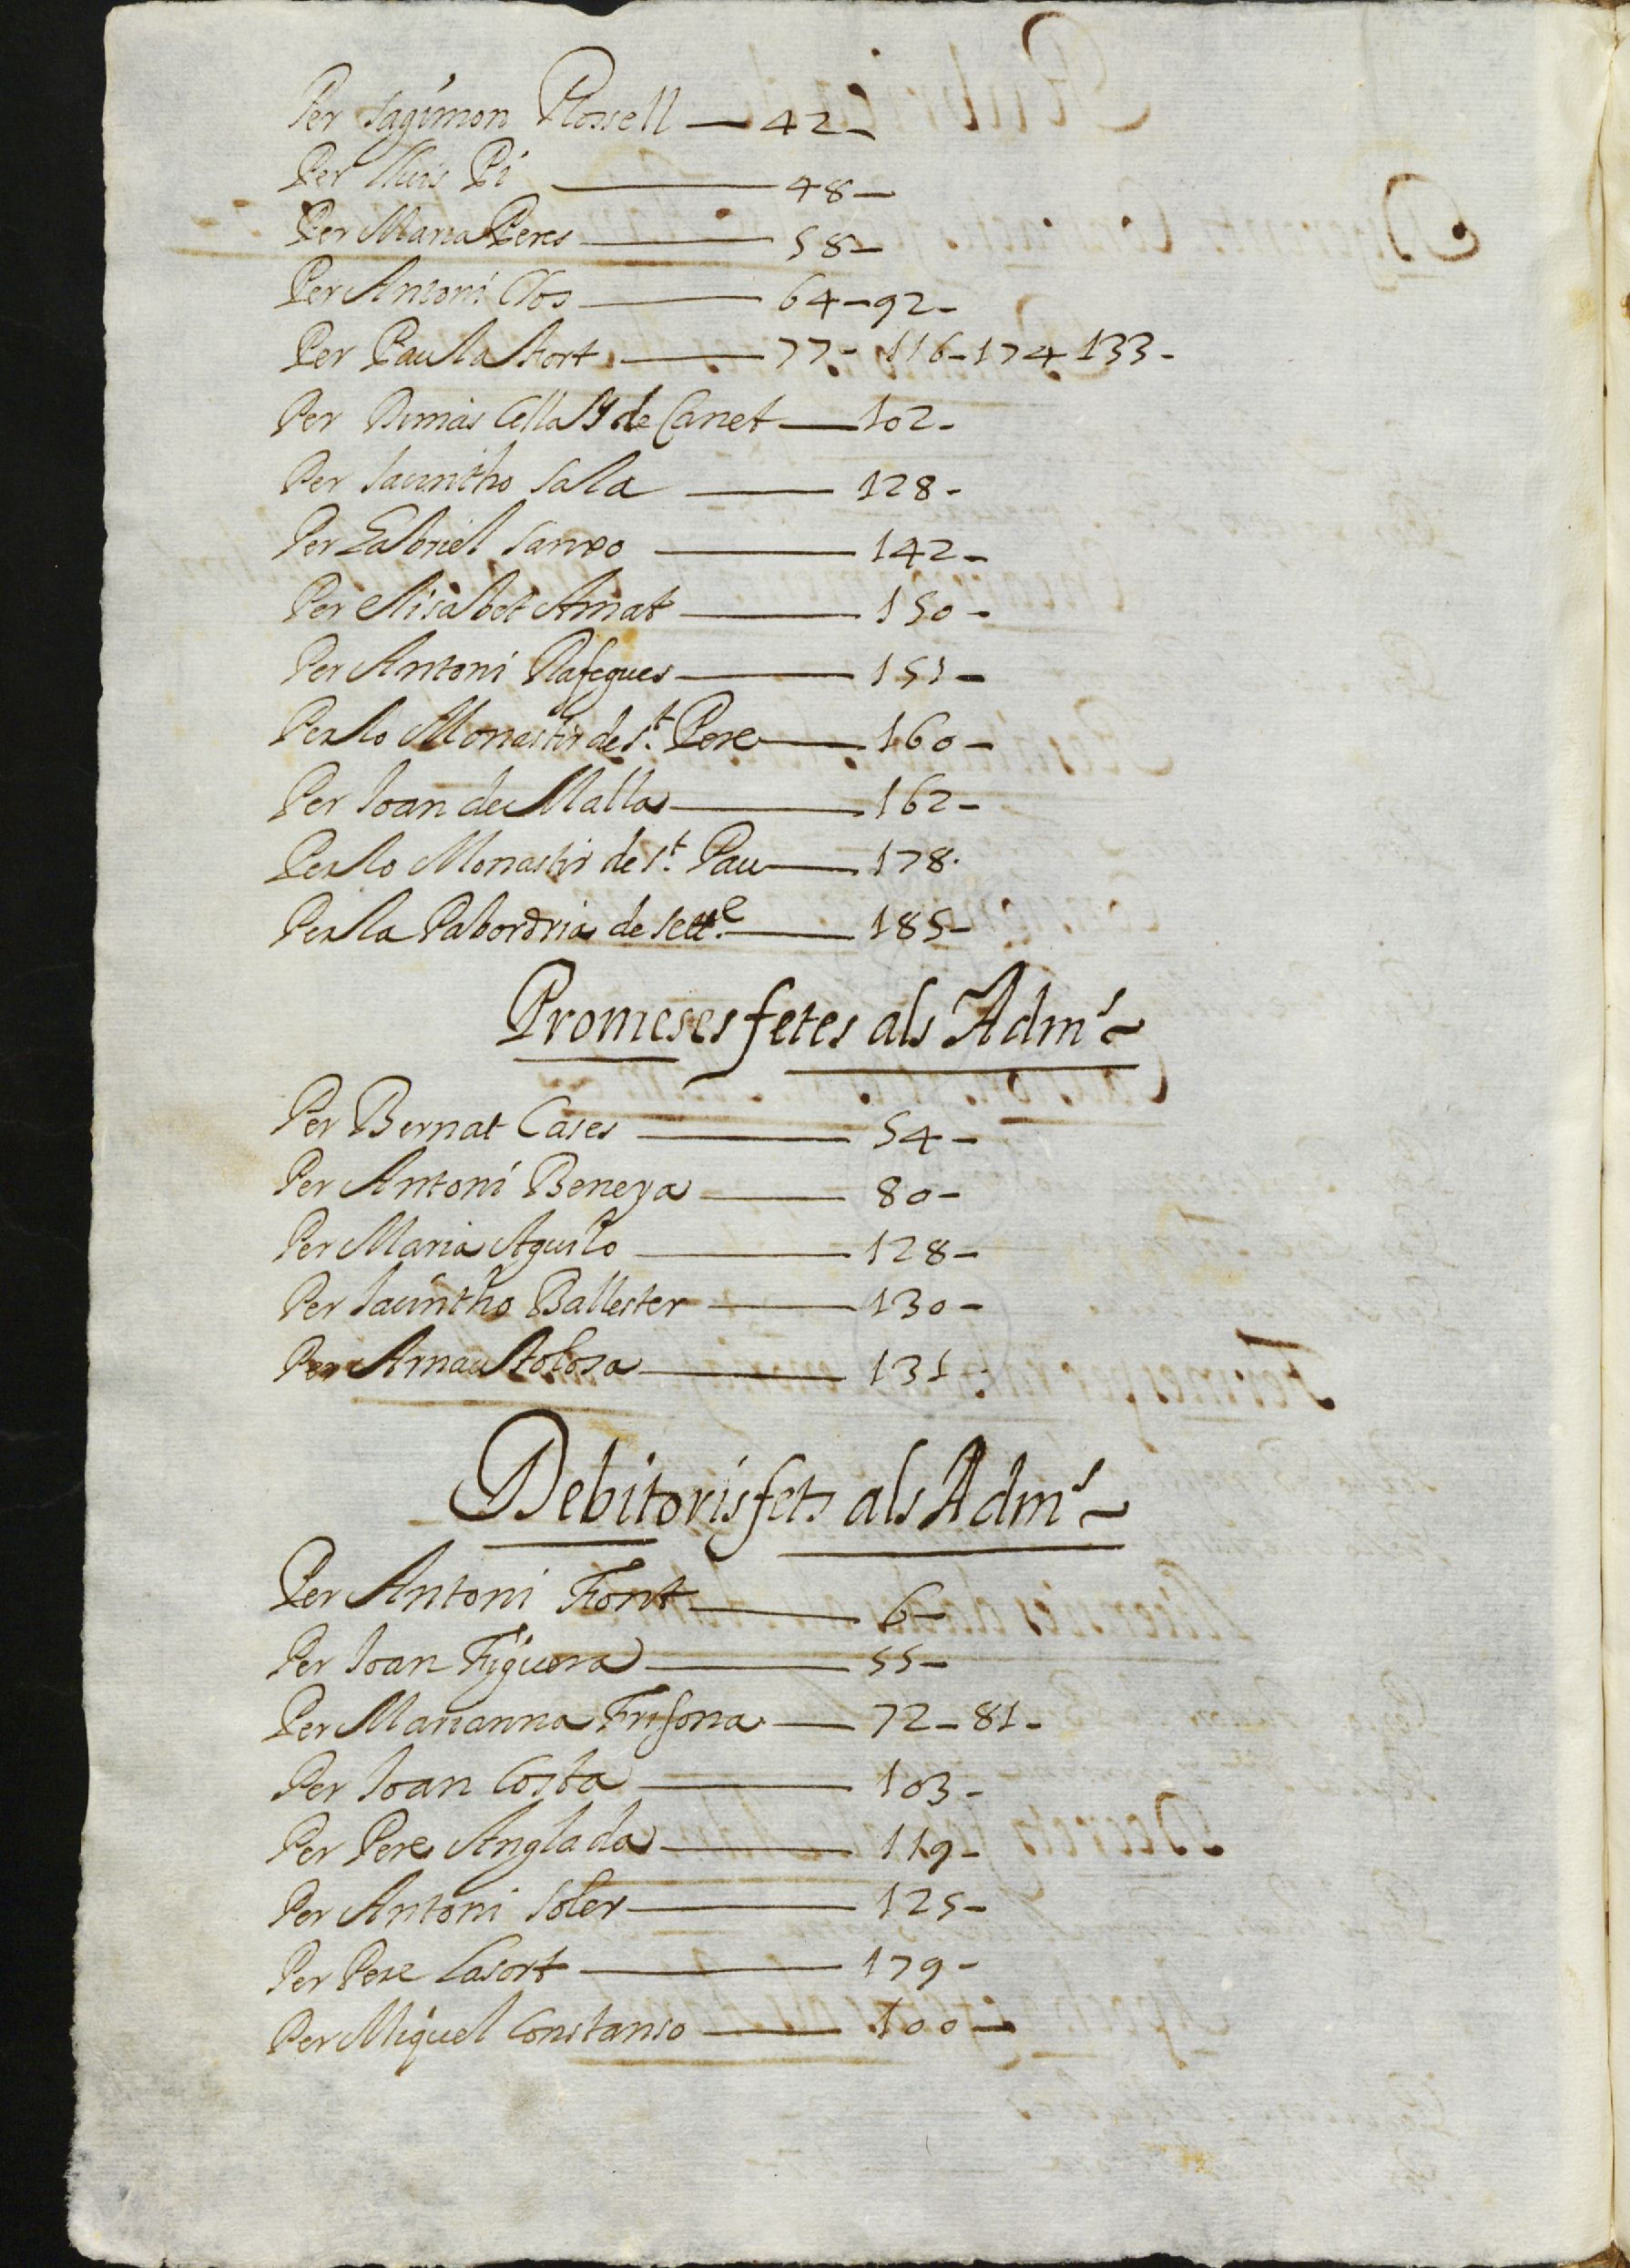 Per Sagimon Rossell — 42 -
Per Lluis Pi — 48 -
Per Maria Peres — 58 -
Per Antoni Clos — 64 - 92 -
Per Paula Hort — 77 - 116 - 174 133 -
Per Dimas Cella de Canet — 102 -
Per Iacintho Sala — 128 -
Per Gabriel Sanxo — 142 -
Per Elisabet Amat — 150 -
Per Antoni Rafegues — 151 -
Per lo Monastir de St. Pere — 160 -
Per Ioan de Malla — 162 -
Per lo Monastir de St. Pau — 178.
Per la Pabordria de Sett.e — 185 -
Promeses fetes als Adm.s ~
Per Bernat Cases — 54 -
Per Antoni Beneya — 80 -
Per Maria Aguilo — 128 -
Per Iacintho Ballester — 130 -
Per Arnau Tolosa — 131 -
Debitoris fets als Adm.s ~
Per Antoni Font — 6 -
Per Ioan Figuera — 55 -
Per Marianna Frisona — 72 - 81 -
Per Ioan Costa — 103 -
Per Pere Anglada — 119 -
Per Antoni Soler — 125 -
Per Pere Casort — 179 -
Per Miquel Constanso — 100 -